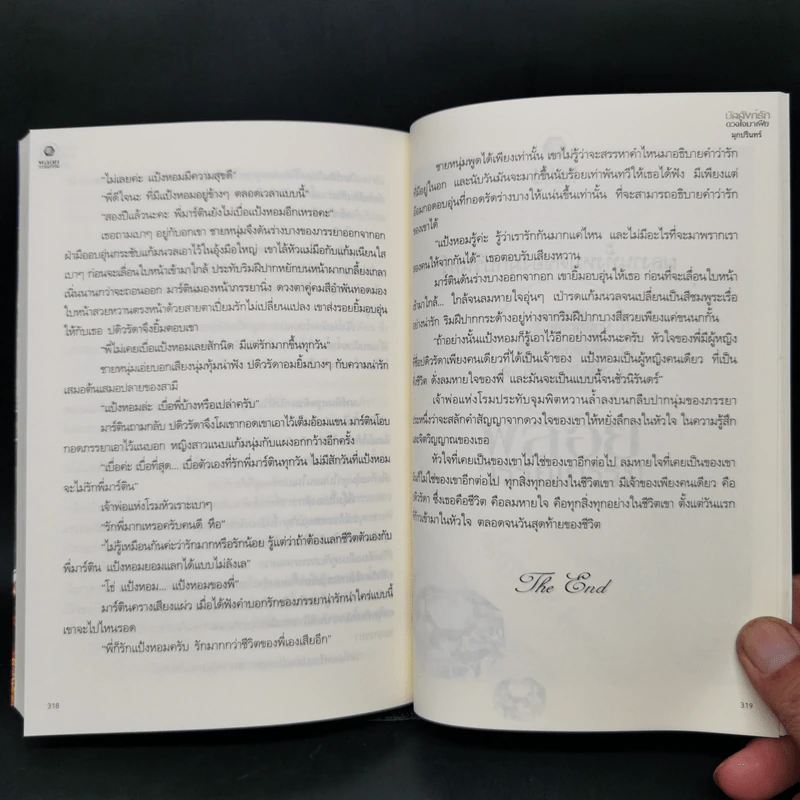 "ไม่เลยค่ะ แป้งหอมมีความสุขดี"
"พี่ดีใจนะ ที่มีแป้งหอมอยู่ข้างๆ ตลอดเวลาแบบนี้"
"สองปีแล้วนะคะ พี่มาร์ตินยังไม่เบื่อแป้งหอมอีกเหรอคะ"
เธอถามเบาๆ อยู่กับอกเขา ชายหนุ่มจึงดันร่างบางของภรรยาออกจากอก
ฝ่ามืออบอุ่นกระชับแก้มนวลเอาไว้ในอุ้งมือใหญ่ เขาไล้หัวแม่มือกับแก้มเนียนใส
เบาๆ ก่อนจะเลื่อนใบหน้าเข้ามาใกล้ ประทับริมฝีปากหยักบนหน้าผากเกลี้ยงเกลา
เนิ่นนานกว่าจะถอนออก มาร์ตินมองหน้าภรรยานิ่ง ดวงตาคู่คมสีอำพันทอดมอง
ใบหน้าสวยหวานตรงหน้าด้วยสายตาเปี่ยมรักไม่เปลี่ยนแปลง เขาส่งรอยยิ้มอบอุ่น
ให้กับเธอ ปติวรัดาจึงยิ้มตอบเขา
"พี่ไม่เคยเบื่อแป้งหอมเลยสักนิด มีแต่รักมากขึ้นทุกวัน"
ชายหนุ่มเอ่ยบอกเสียงนุ่มทุ้มน่าฟัง ปติวรัดาอมยิ้มบางๆ กับความน่ารัก
เสมอต้นเสมอปลายของสามี
"แป้งหอมล่ะ เบื่อพี่บ้างหรือเปล่าครับ"
มาร์ตินถามกลับ ปติวรัดาจึงโผเขากอดเขาเอาไว้เต็มอ้อมแขน มาร์ตินโอบ
กอดภรรยาเอาไว้แนบอก หญิงสาวแนบแก้มนุ่มกับแผงอกกว้างอีกครั้ง
"เบื่อค่ะ เบื่อที่สุด... เบื่อตัวเองที่รักพี่มาร์ตินทุกวัน ไม่มีสักวันที่แป้งหอม
จะไม่รักพี่มาร์ติน"
เจ้าพ่อแห่งโรมหัวเราะเบาๆ
"รักพี่มากเหรอครับคนดี หือ"
"ไม่รู้เหมือนกันค่ะว่ารักมากหรือรักน้อย รู้แต่ว่าถ้าต้องแลกชีวิตตัวเองกับ
พี่มาร์ติน แป้งหอมยอมแลกได้แบบไม่ลังเล"
"โธ่ แป้งหอม... แป้งหอมของพี่"
มาร์ตินครางเสียงแผ่ว เมื่อได้ฟังคำบอกรักของภรรยาน่ารักน่าใคร่แบบนี้
เขาจะไปไหนรอด
"พี่ก็รักแป้งหอมครับ รักมากกว่าชีวิตของพี่เองเสียอีก"
318
ดวงใจมาเฟีย
มุกปรินทร์
ชายหนุ่มพูดได้เพียงเท่านั้น เขาไม่รู้ว่าจะสรรหาคำไหนมาอธิบายคำว่ารัก
ที่มีอยู่ในอก และนับวันมันจะมากขึ้นนับร้อยเท่าพันทวีให้เธอได้ฟัง มีเพียงแต่
อ้อมกอดอบอุ่นที่กอดรัดร่างบางให้แน่นขึ้นเท่านั้น ที่จะสามารถอธิบายคำว่ารัก
ของเขาได้
"แป้งหอมรู้ค่ะ รู้ว่าเรารักกันมากแค่ไหน และไม่มีอะไรที่จะมาพรากเรา
สองคนให้จากกันได้" เธอตอบรับเสียงหวาน
มาร์ตินดันร่างบางออกจากอก เขายิ้มอบอุ่นให้เธอ ก่อนที่จะเลื่อนใบหน้า
เข้ามาใกล้... ใกล้จนลมหายใจอุ่นๆ เป่ารดแก้มนวลจนเปลี่ยนเป็นสีชมพูระเรื่อ
อย่างน่ารัก ริมฝีปากกระด้างอยู่ห่างจากริมฝีปากบางสีสวยเพียงแค่ขนนกกั้น
"ถ้าอย่างนั้นแป้งหอมก็รู้เอาไว้อีกอย่างหนึ่งนะครับ หัวใจของพี่มีผู้หญิง
ชื่อปติวรัดาเพียงคนเดียวที่ได้เป็นเจ้าของ แป้งหอมเป็นผู้หญิงคนเดียว ที่เป็น
ทั้งชีวิต ดั่งลมหายใจของพี่ และมันจะเป็นแบบนี้จนชั่วนิรันดร์"
เจ้าพ่อแห่งโรมประทับจุมพิตหวานล้ำลงบนกลีบปากนุ่มของภรรยา
ประหนึ่งว่าจะสลักคำสัญญาจากดวงใจของเขาให้หยั่งลึกลงในหัวใจ ในความรู้สึก
และจิตวิญญาณของเธอ
หัวใจที่เคยเป็นของเขาไม่ใช่ของเขาอีกต่อไป ลมหายใจที่เคยเป็นของเขา
มันก็ไม่ใช่ของเขาอีกต่อไป ทุกสิ่งทุกอย่างในชีวิตเขา มีเจ้าของเพียงคนเดียว คือ
ปติวรัดา ซึ่งเธอคือชีวิต คือลมหายใจ คือทุกสิ่งทุกอย่างในชีวิตเขา ตั้งแต่วันแรก
ที่ก้าวเข้ามาในหัวใจ ตลอดจนวันสุดท้ายของชีวิต
The End
319